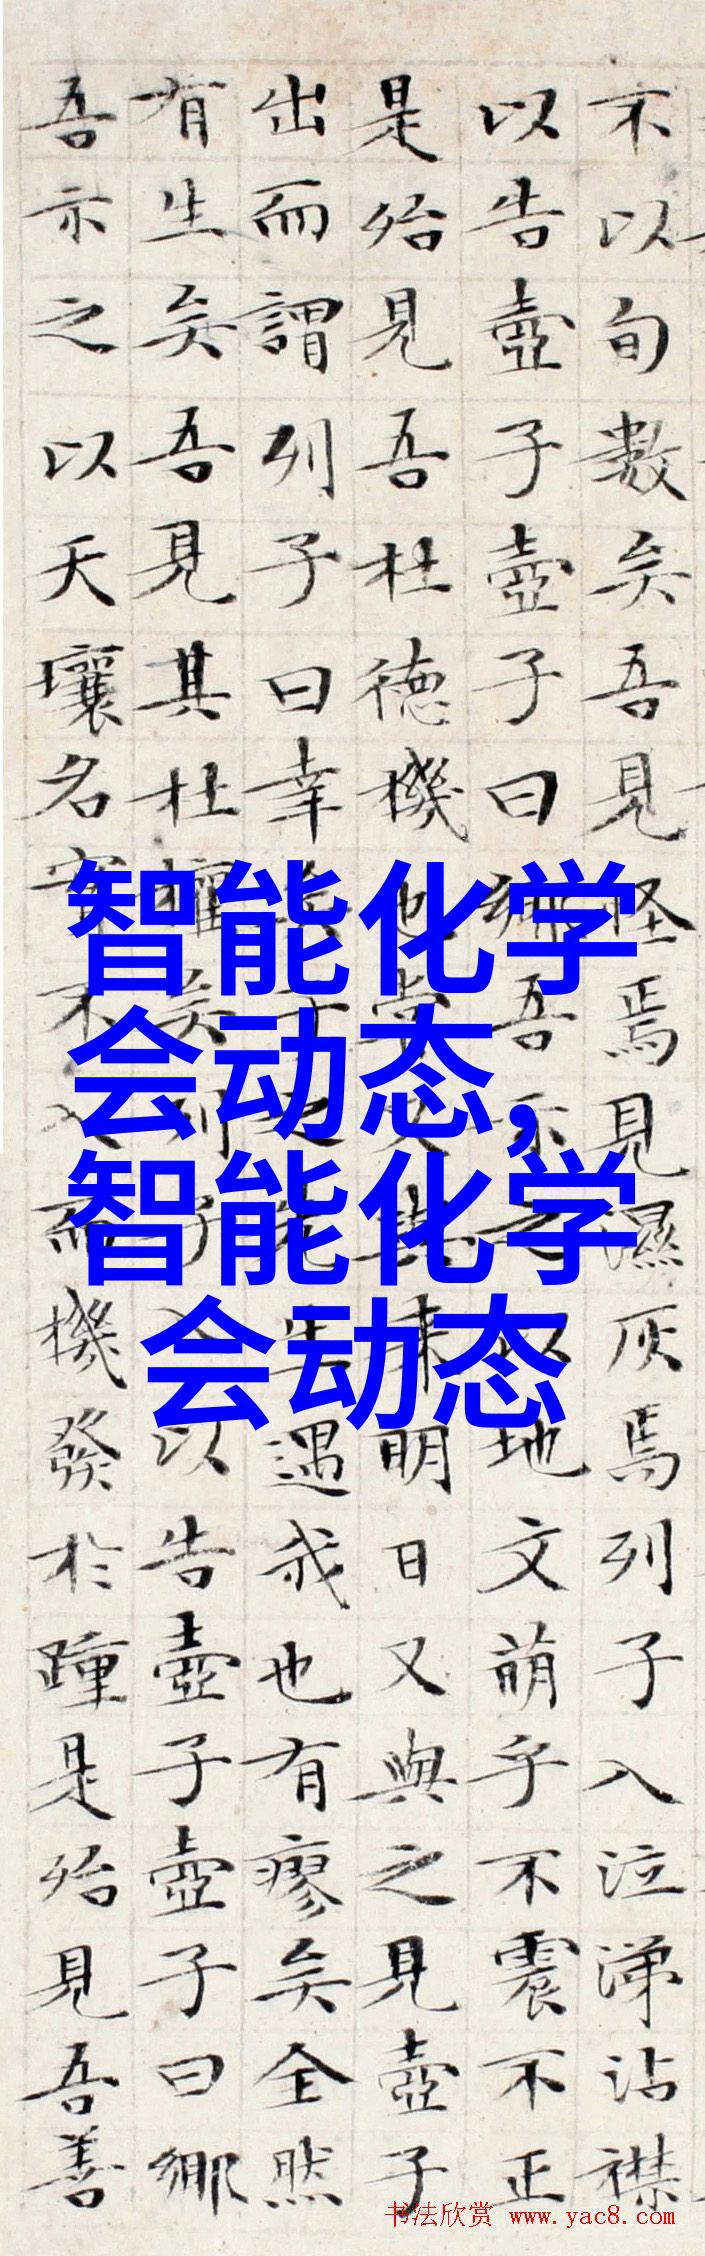 不以旬數矣吾見怪焉見濕灰焉列子入泣涕沾襟
以告壺子壺子曰鄉吾示之以地文萌乎不震不正
是殆見吾杜德機也嘗又與來明日又與之見壺子
出而謂列子曰幸矣子之先生遇我也有瘳矣全然
有生矣吾見其杜權矣列子入以告壺子壺子曰鄉
吾示之以天壤名實不入而機發於踵是殆見吾善
智能化学
会动态,
智能化学
会动态
书法欣赏 www.yac8.com